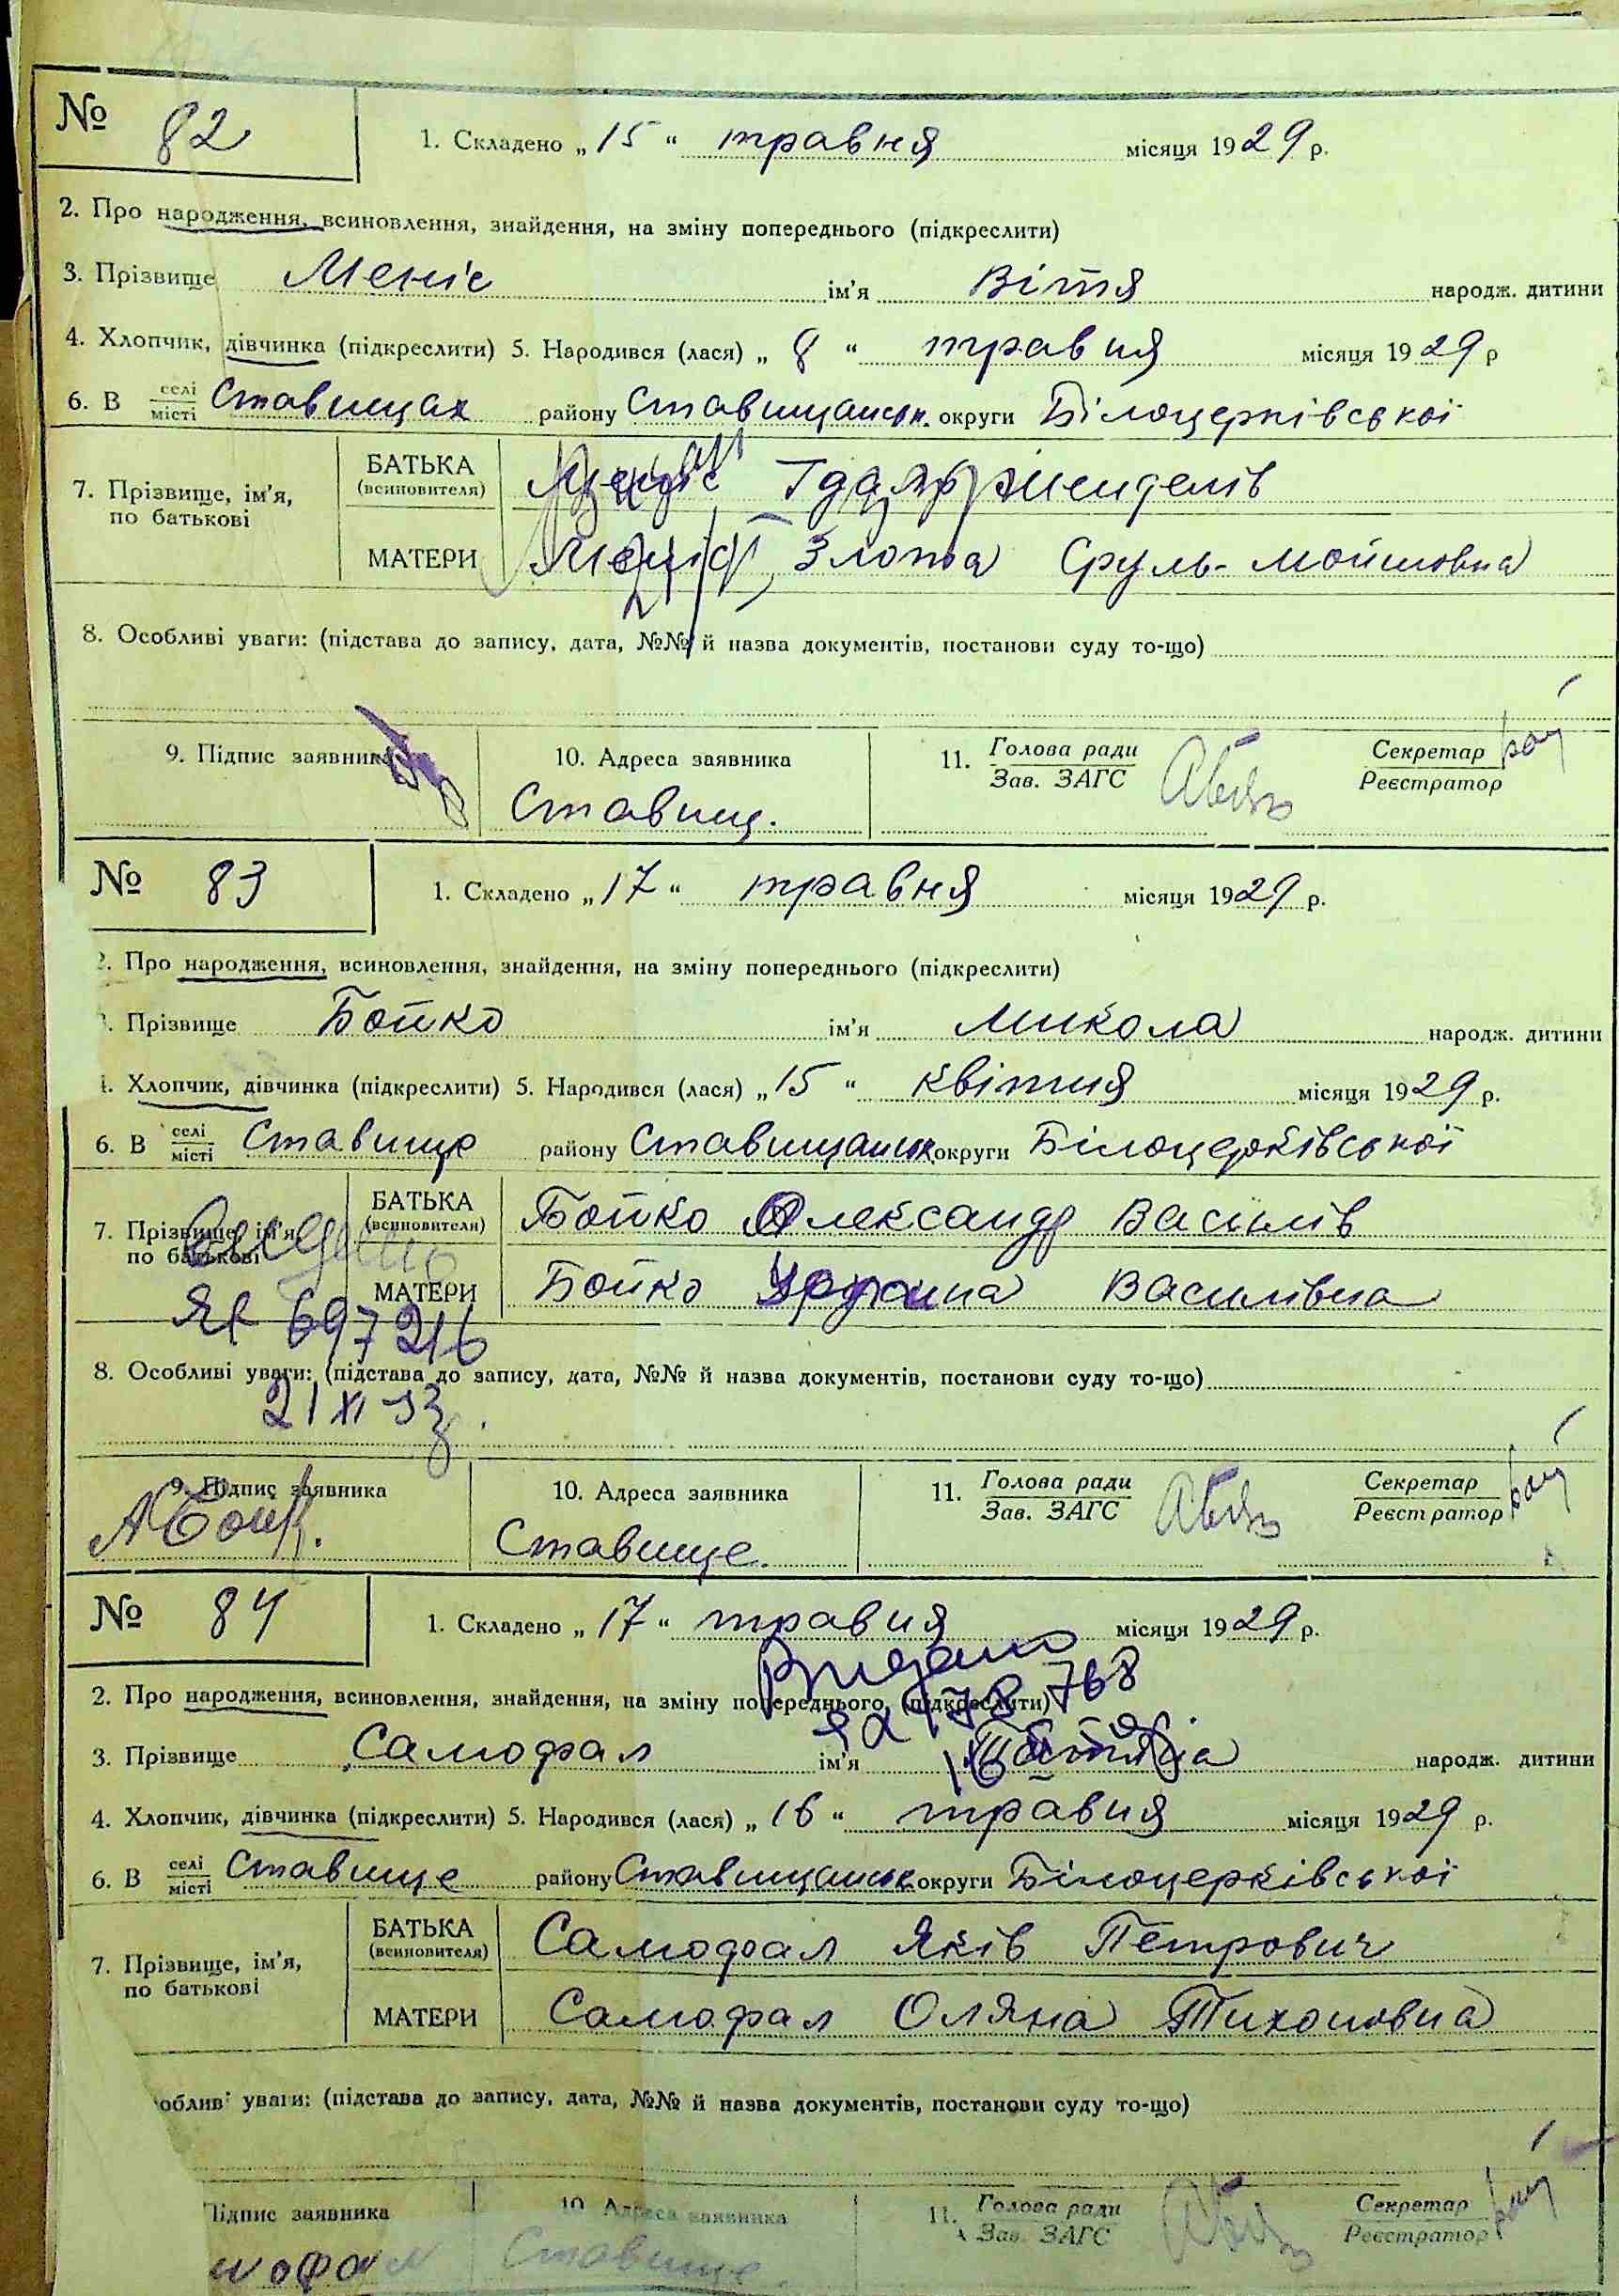 № 82
1. Складено „ 15 “ травня місяця 1929 р.
2. Про народження, всиновлення, знайдення, на зміну попереднього (підкреслити)
3. Прізвище Меніс ім’я Вітя народж. дитини
4. Хлопчик, дівчинка (підкреслити) 5. Народився (лася) „ 8 “ травня місяця 1929 р
6. В селі місті Ставищах району Ставищанськ. округи Білоцерківської
7. Прізвище, ім’я, по батькові
БАТЬКА (всиновителя)
МАТЕРИ Злота Сруль-Мойшовна
8. Особливі уваги: (підстава до запису, дата, №№ й назва документів, постанови суду то-що)
9. Підпис заявника 10. Адреса заявника 11. Голова ради Зав. ЗАГС Секретар Реєстратор
Ставищ.
№ 83
1. Складено „ 17 “ травня місяця 1929 р.
2. Про народження, всиновлення, знайдення, на зміну попереднього (підкреслити)
. Прізвище Бойко ім’я Микола народж. дитини
4. Хлопчик, дівчинка (підкреслити) 5. Народився (лася) „ 15 “ квітня місяця 1929 р.
6. В селі місті Ставище району Ставищанськ округи Білоцерківської
7. Прізвище, ім’я, по батькові
БАТЬКА (всиновителя) Бойко Олександр Василів
МАТЕРИ Бойко Василівна
697216
8. Особливі уваги: (підстава до запису, дата, №№ й назва документів, постанови суду то-що)
21 XI
9. Підпис заявника 10. Адреса заявника 11. Голова ради Зав. ЗАГС Секретар Реєстратор
АБойк. Ставище.
№ 84
1. Складено „ 17 “ травня місяця 1929 р.
2. Про народження, всиновлення, знайдення, на зміну попереднього (підкреслити)
3. Прізвище Самофал ім’я народж. дитини
4. Хлопчик, дівчинка (підкреслити) 5. Народився (лася) „ 16 “ травня місяця 1929 р.
6. В селі місті Ставище району Ставищанськ округи Білоцерківської
7. Прізвище, ім’я, по батькові
БАТЬКА (всиновителя) Самофал Яків Петрович
МАТЕРИ Самофал Оляна Тихоновна
облив уваги: (підстава до запису, дата, №№ й назва документів, постанови суду то-що)
Підпис заявника 10. Адреса заявника 11. Голова ради Зав. ЗАГС Секретар Реєстратор
мофал Ставище.